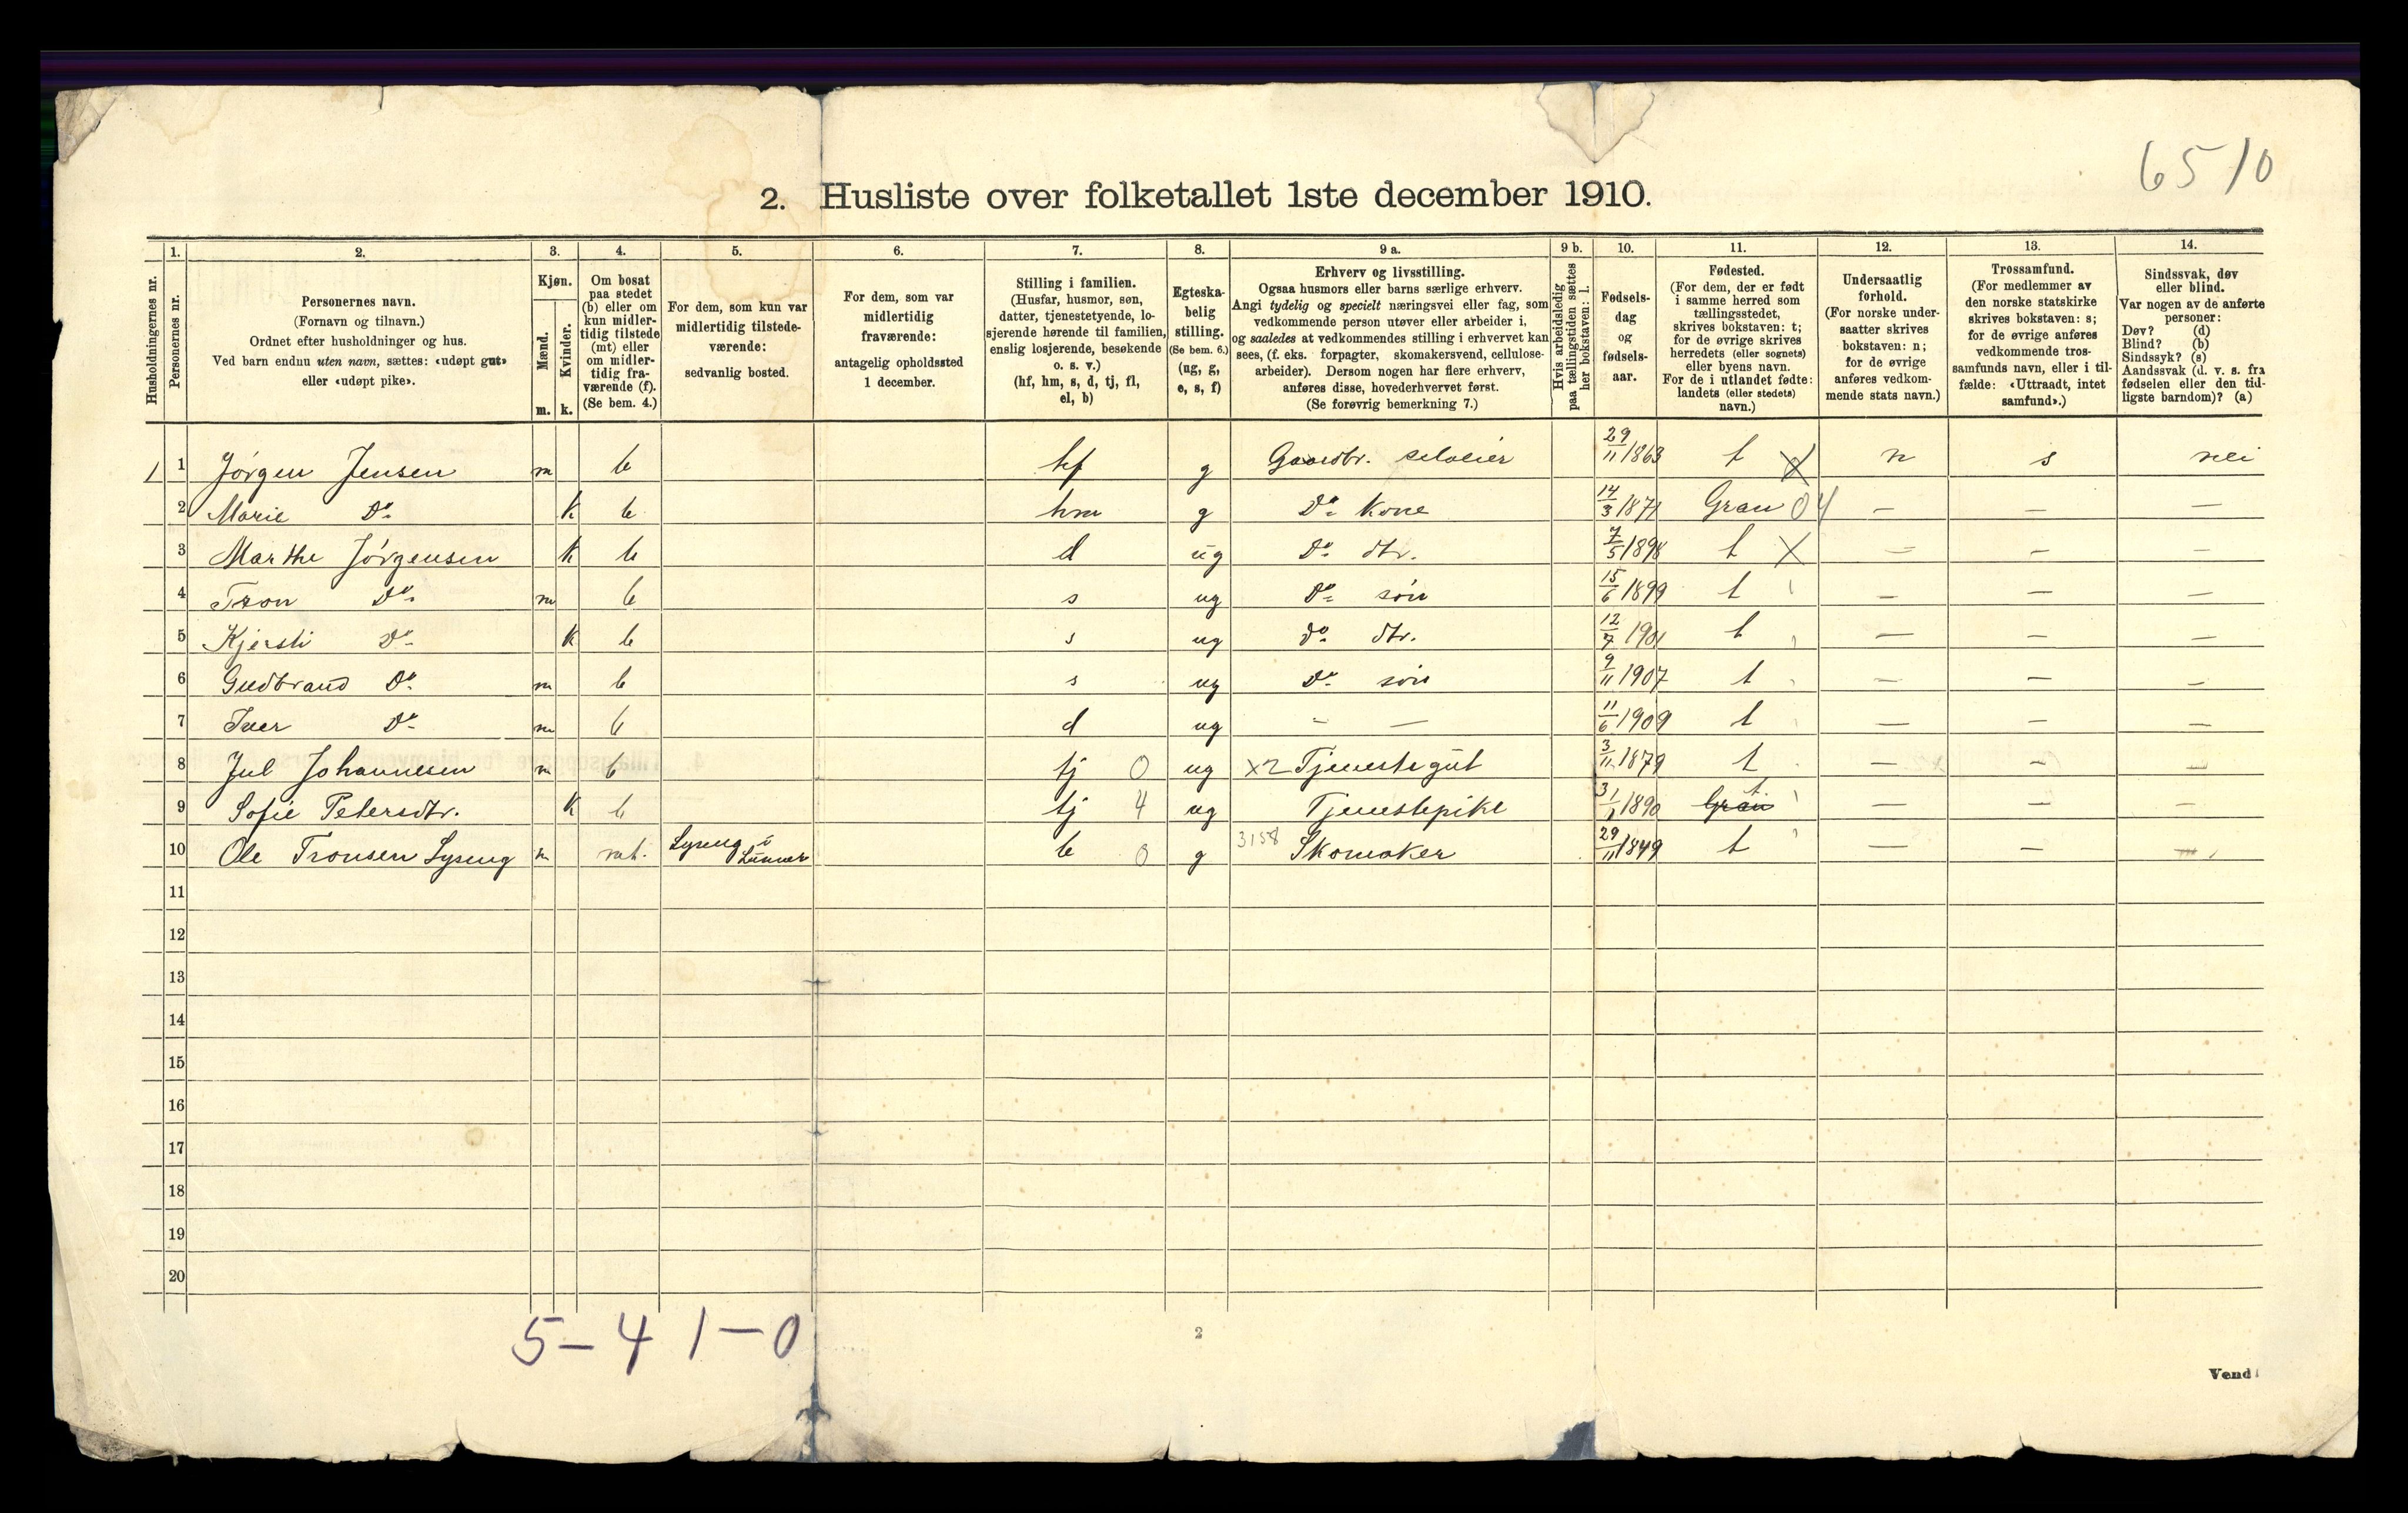 65 10
2. Husliste over folketallet 1ste december 1910.
Husholdningernes nr.
1.
Personernes nr.
2.
Personernes navn.
(Fornavn og tilnavn.)
Ordnet efter husholdninger og hus.
Ved barn endnu uten navn, sættes: «udøpt gut»
eller «udøpt pike».
3.
Kjøn.
Mænd.
Kvinder.
m. k.
4.
Om bosat
paa stedet
(b) eller om
kun midler-
tidig tilstede
(mt) eller
om midler-
tidig fra-
værende (f).
(Se bem. 4.)
5.
For dem, som kun var
midlertidig tilstede-
værende:
sedvanlig bosted.
6.
For dem, som var
midlertidig
fraværende:
antagelig opholdssted
1 december.
7.
Stilling i familien.
(Husfar, husmor, søn,
datter, tjenestetyende, lo-
sjerende hørende til familien,
enslig losjerende, besøkende
o. s. v.)
(hf, hm, s, d, tj, fl,
el, b)
8.
Egteska-
belig
stilling.
(Se bem. 6.)
(ug, g,
e, s, f)
9 a.
Erhverv og livsstilling.
Ogsaa husmors eller barns særlige erhverv.
Angi tydelig og specielt næringsvei eller fag, som
vedkommende person utøver eller arbeider i,
og saaledes at vedkommendes stilling i erhvervet kan
sees, (f. eks. forpagter, skomakersvend, cellulose-
arbeider). Dersom nogen har flere erhverv,
anføres disse, hovederhvervet først.
(Se forøvrig bemerkning 7.)
9 b.
Hvis arbeidsledig
paa tællingstiden sættes
her bokstaven: l.
10.
Fødsels-
dag
og
fødsels-
aar.
11.
Fødested.
(For dem, der er født
i samme herred som
tællingsstedet,
skrives bokstaven: t;
for de øvrige skrives
herredets (eller sognets)
eller byens navn.
For de i utlandet fødte:
landets (eller stedets)
navn.)
12.
Undersaatlig
forhold.
(For norske under-
saatter skrives
bokstaven: n;
for de øvrige
anføres vedkom-
mende stats navn.)
13.
Trossamfund.
(For medlemmer av
den norske statskirke
skrives bokstaven: s;
for de øvrige anføres
vedkommende tros-
samfunds navn, eller i til-
fælde: «Uttraadt, intet
samfund».)
14.
Sindssvak, døv
eller blind.
Var nogen av de anførte
personer:
Døv? (d)
Blind? (b)
Sindssyk? (s)
Aandssvak (d. v. s. fra
fødselen eller den tid-
ligste barndom)? (a)
1 1 Jørgen Jensen m b hf g Gaardbr. selveier 29/11 1863 t X n s nei
2 Marie Do k b hm g Do kone 14/3 1871 Gran 04 — — —
3 Marthe Jørgensen k b d ug Do dtr. 7/5 1898 t X — — —
4 Tron Do m b s ug Do søn 15/6 1899 t — — —
5 Kjersti Do k b s ug do dtr. 12/7 1901 t — — —
6 Gudbrand Do m b s ug Do søn 9/11 1907 t — — —
7 Iver Do m b d ug — — 11/6 1909 t — — —
8 Jul Johannesen m b tj 0 ug x2 Tjenestegut 3/11 1879 t — — —
9 Sofie Petersdtr. k b tj 4 ug Tjenestepike 31/1 1890 Gran t. — — —
10 Ole Tronsen Lyseng m mt. Lyseng i Lunner b 0 g 3158 Skomaker 29/11 1849 t — —
11
12
13
14
15
16
17
18
19
20
5 – 4 1 – 0
2
Vend!